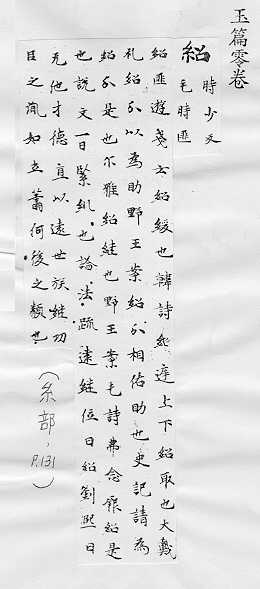 玉篇零卷
紹 時少反 毛詩匪
紹匪遊箋云紹緩也韓詩紹
達上下紹取也大戴
礼紹
以為助野王案紹
相佑助也史記請為
紹
是也尒雅紹継也野王案毛詩弗念
紹是
也說文一曰緊糺也論法疏遠継位曰紹劉熙曰
无他才德直以遠世族継功
臣之
如立蕭何後之類也
(糸部,P.131)